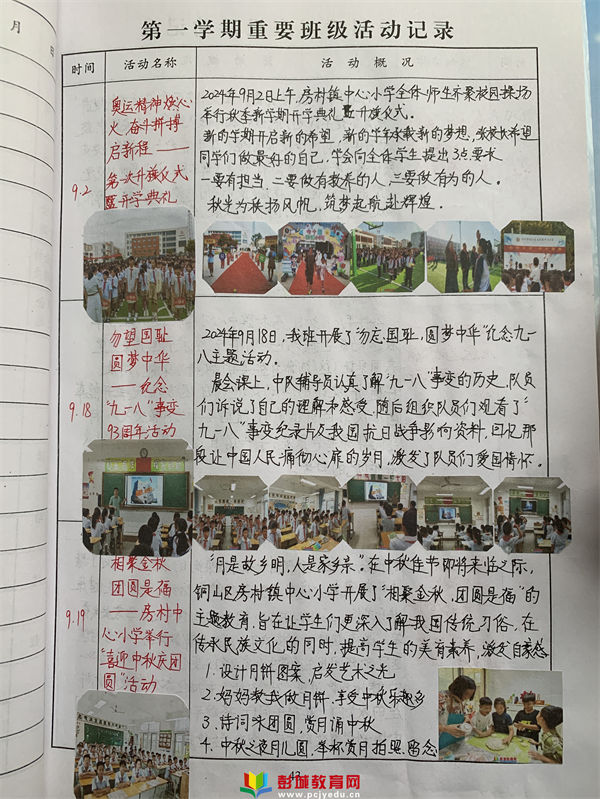 月 日
第一学期重要班级活动记录
时间 活动名称 活动概况
9.2
奥运精神燃心
火 奋斗拼搏
启新程——
第一次升旗仪式
暨开学典礼
2024年9月2日上午,房村镇中心小学全体师生齐聚校园操场
举行秋季新学期开学典礼暨升旗仪式。
新的学期开启新的希望,新的学年承载新的梦想,张校长希望
同学们做最好的自己,学会向全体学生提出3点要求
一要有担当,二要做有教养的人,三要做有为的人。
秋光为秋扬风帆,筑梦起航赴辉煌。
9.18
勿望国耻
圆梦中华
——纪念
“九一八”事变
93周年活动
2024年9月18日,我班开展了“勿忘国耻,圆梦中华”纪念九一
八主题活动。
晨会课上,中队辅导员认真了解“九一八”事变的历史,队员
们诉说了自己的理解和感受,随后组织队员们观看了“
九一八”事变纪录片及我国抗日战争影响资料,回忆那
段让中国人民痛彻心扉的岁月,激发了队员们爱国情怀。
9.19
相聚金秋
团圆是福
——房村中
心小学举行
“喜迎中秋庆团
圆”活动
“月是故乡明,人是家乡亲”。在中秋佳节即将来临之际,
铜山区房村镇中心小学开展了“相聚金秋,团圆是福”的
主题教育,旨在让学生们更深入了解我国传统习俗,在
传承民族文化的同时,提高学生的美育素养,激发自豪感
1.设计月饼图案,启发艺术之光
2.妈妈教我做月饼,享受中秋乐趣多
3.诗词咏团圆,赏月诵中秋
4.中秋之夜月儿圆,举杯赏月拍照留念
43
彭城教育网
www.pcjyedu.cn